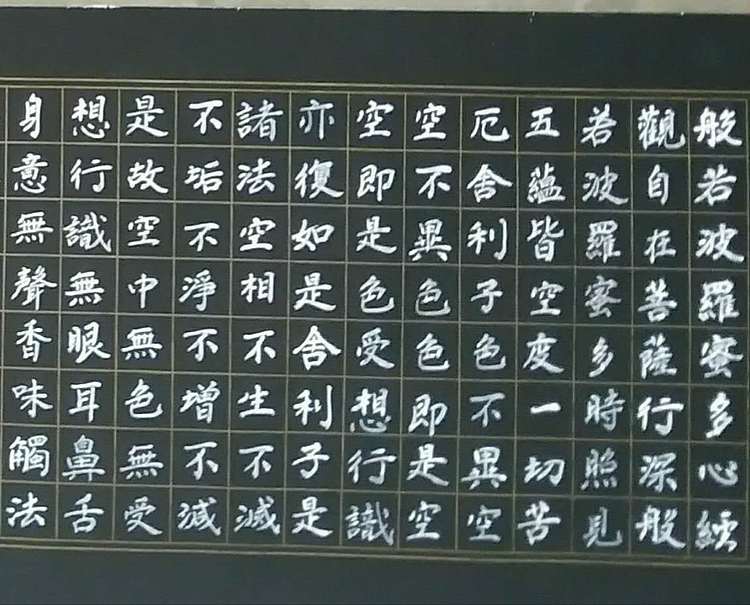 般若波羅蜜多心經
觀自在菩薩行深般
若波羅蜜多時照見
五蘊皆空度一切苦
厄舍利子色不異空
空不異色色即是空
空即是色受想行識
亦復如是舍利子是
諸法空相不生不滅
不垢不淨不增不減
是故空中無色無受
想行識無眼耳鼻舌
身意無聲香味觸法